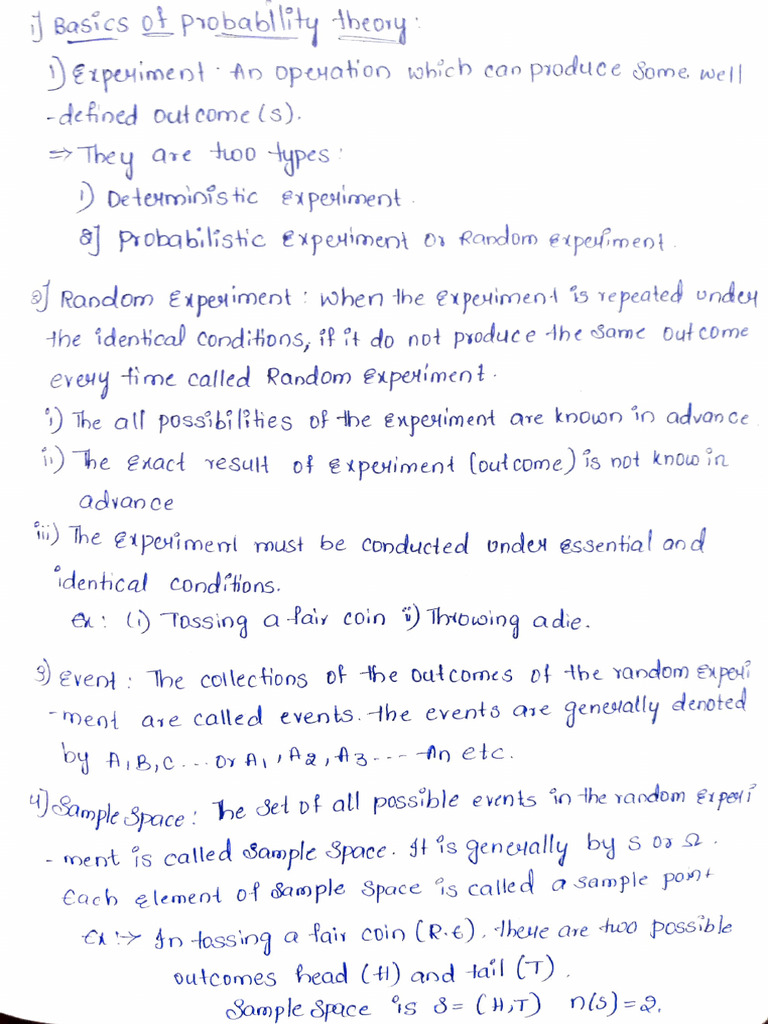 i] Basics of Probability theory:
1) Experiment: An operation which can produce some well
-defined outcome(s).
⇒ They are two types:
1) Deterministic experiment.
2] Probabilistic Experiment or Random experiment.
2] Random Experiment: when the experiment is repeated under
the identical conditions, if it do not produce the same outcome
every time called Random Experiment.
i) The all possibilities of the experiment are known in advance
ii) The exact result of experiment (outcome) is not know in
advance
iii) The experiment must be conducted under essential and
identical conditions.
Ex: (i) Tossing a fair coin ii) Throwing a die.
3) Event: The collections of the outcomes of the random experi
-ment are called events. the events are generally denoted
by A,B,C... or A1, A2, A3.... An etc.
4) Sample Space: The set of all possible events in the random experi
-ment is called Sample Space. It is generally by S or Ω.
Each element of Sample Space is called a sample point
Ex:→ In tossing a fair coin (R.E). there are two possible
outcomes head (H) and tail (T).
Sample Space is S= (H,T) n(s)=2.